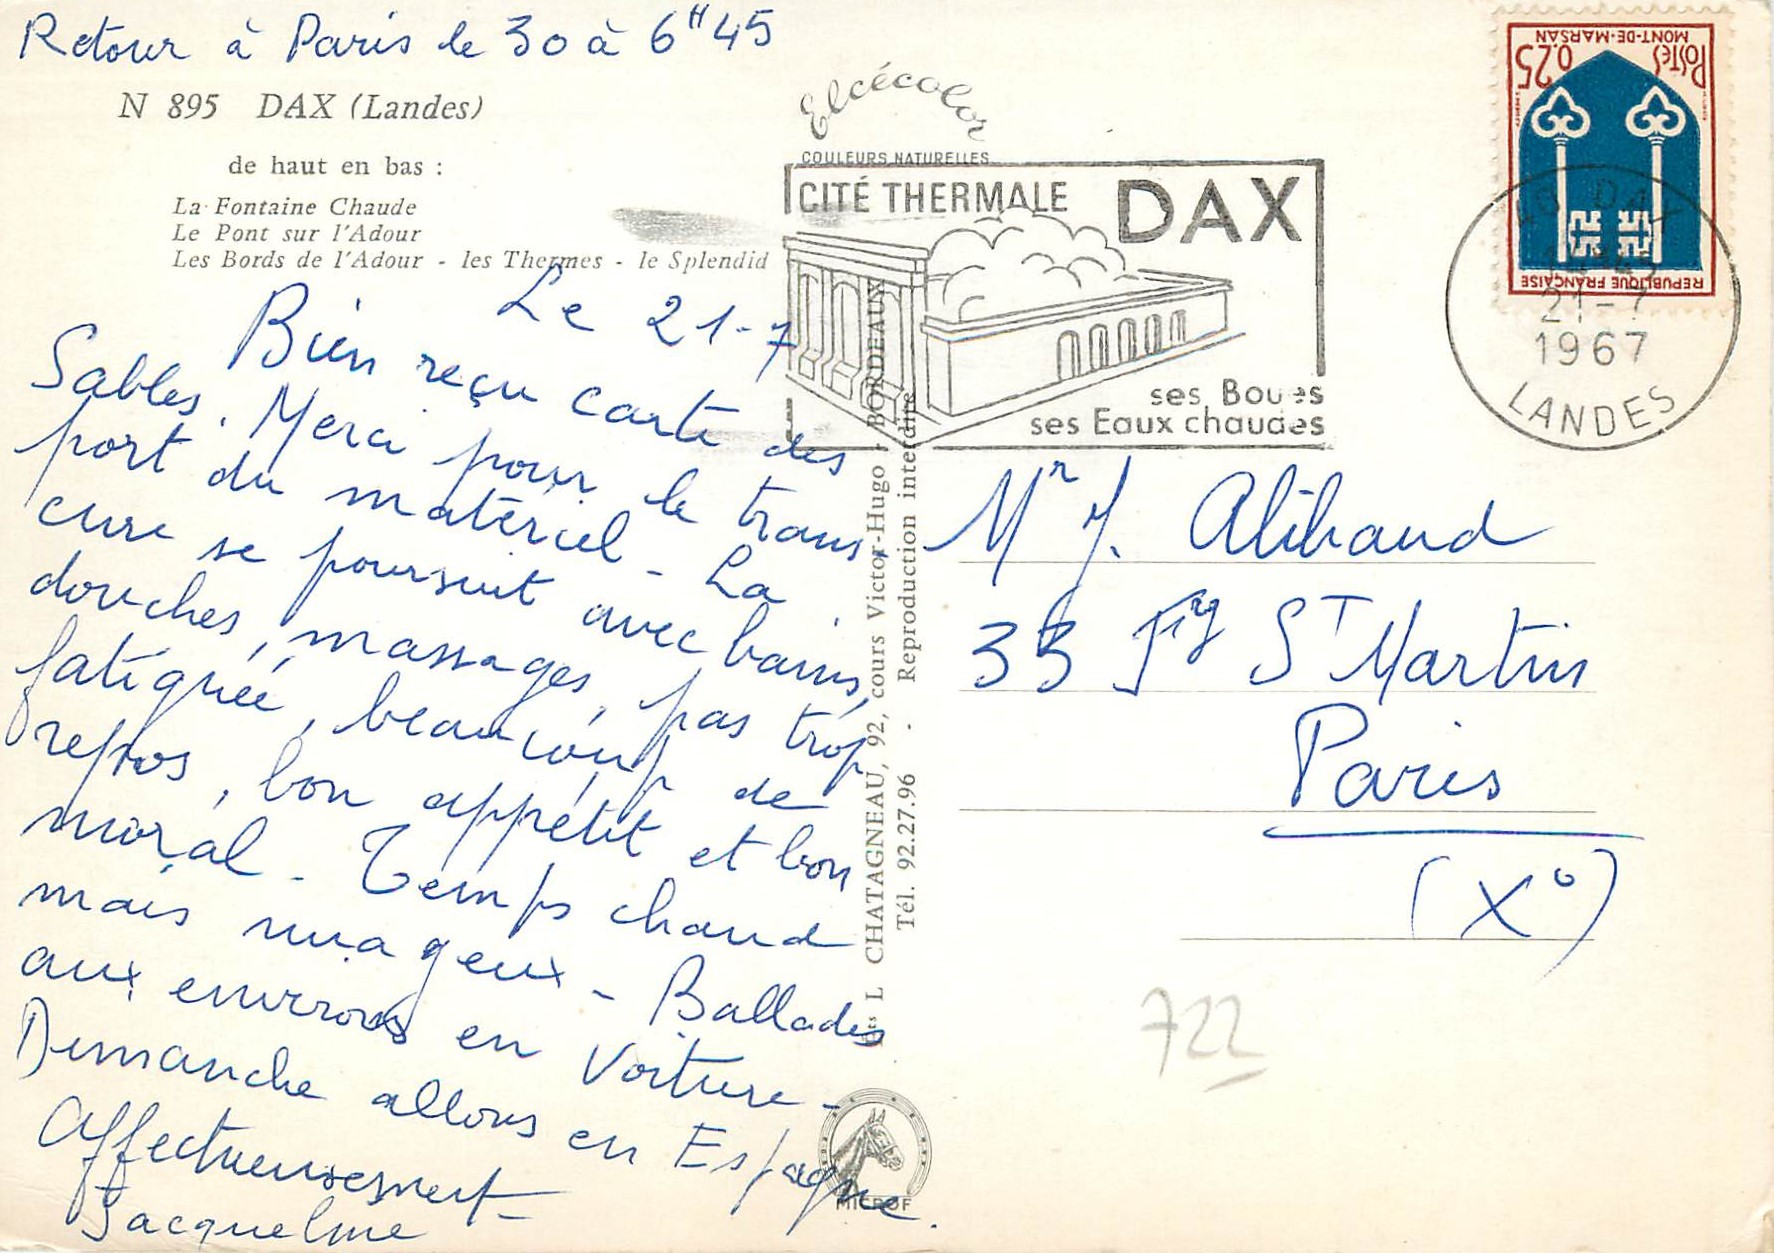 Retour à Paris le 30 à 6H45
N 895 DAX (Landes)
de haut en bas :
La Fontaine Chaude
Le Pont sur l'Adour
Les Bords de l'Adour - les Thermes - le Splendid
Le 21-7
Bien reçu carte des
Sables. Merci pour le trans-
port du matériel - La
cure se poursuit avec bains,
douches, massages, pas trop
fatiguée, beaucoup de
repos, bon appétit et bon
moral - Temps chaud
mais nuageux - Ballades
aux environs en voiture -
Dimanche allons en Espagne.
Affectueusement -
Jacqueline
Elcécolor
COULEURS NATURELLES
CITÉ THERMALE DAX
ses Boues
ses Eaux chaudes
Ets L CHATAGNEAU, 92, cours Victor-Hugo - BORDEAUX
Tél. 92.27.96 - Reproduction interdite
MICROF
POSTES 0,25
MONT-DE-MARSAN
REPUBLIQUE FRANÇAISE
DAX
21-7
1967
LANDES
Mr J. Alibaud
33 Fg ST Martin
Paris
(X°)
722